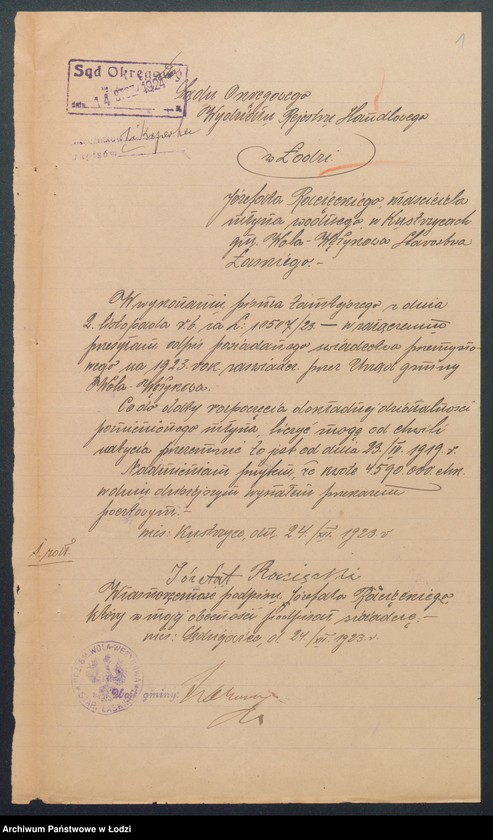 1
Sąd Okręgowy
dnia 14 1924
Sądu Okręgowego
Wydziału Rejestru Handlowego
w Łodzi
Józefata Rocięckiego, właściciela
młyna wodnego w Kustrzycach
gm. Wola-Wężykowa Starostwa
Łaskiego.-
W wykonaniu pisma tamtejszego z dnia
2. listopada r.b. za L: 10507/23 - w załączeniu
przesyłam odpis posiadanego świadectwa przemysło-
wego na 1923. rok, zaświadcz. przez Urząd gminy
Wola-Wężykowa.
Co do daty rozpoczęcia dokładnej działalności
pomienionego młyna, liczyć mogę od chwili
nabycia przezemnie to jest od dnia 23/IV. 1919. r.
Nadmieniam przytem, że kwotę 4590.000. mk.
w dniu dzisiejszym wysłałem przekazem
pocztowym.-
wieś: Kustrzyce, dn. 24/XII. 1923 r.
1. zał.
Józefat Rocięcki
Własnoręczność podpisu, Józefata Rocięckiego,
który w mojej obecności podpisał, świadczę.-
wieś: d. 24/XII. 1923. r.
Wójt gminy:
Archiwum Państwowe w Łodzi